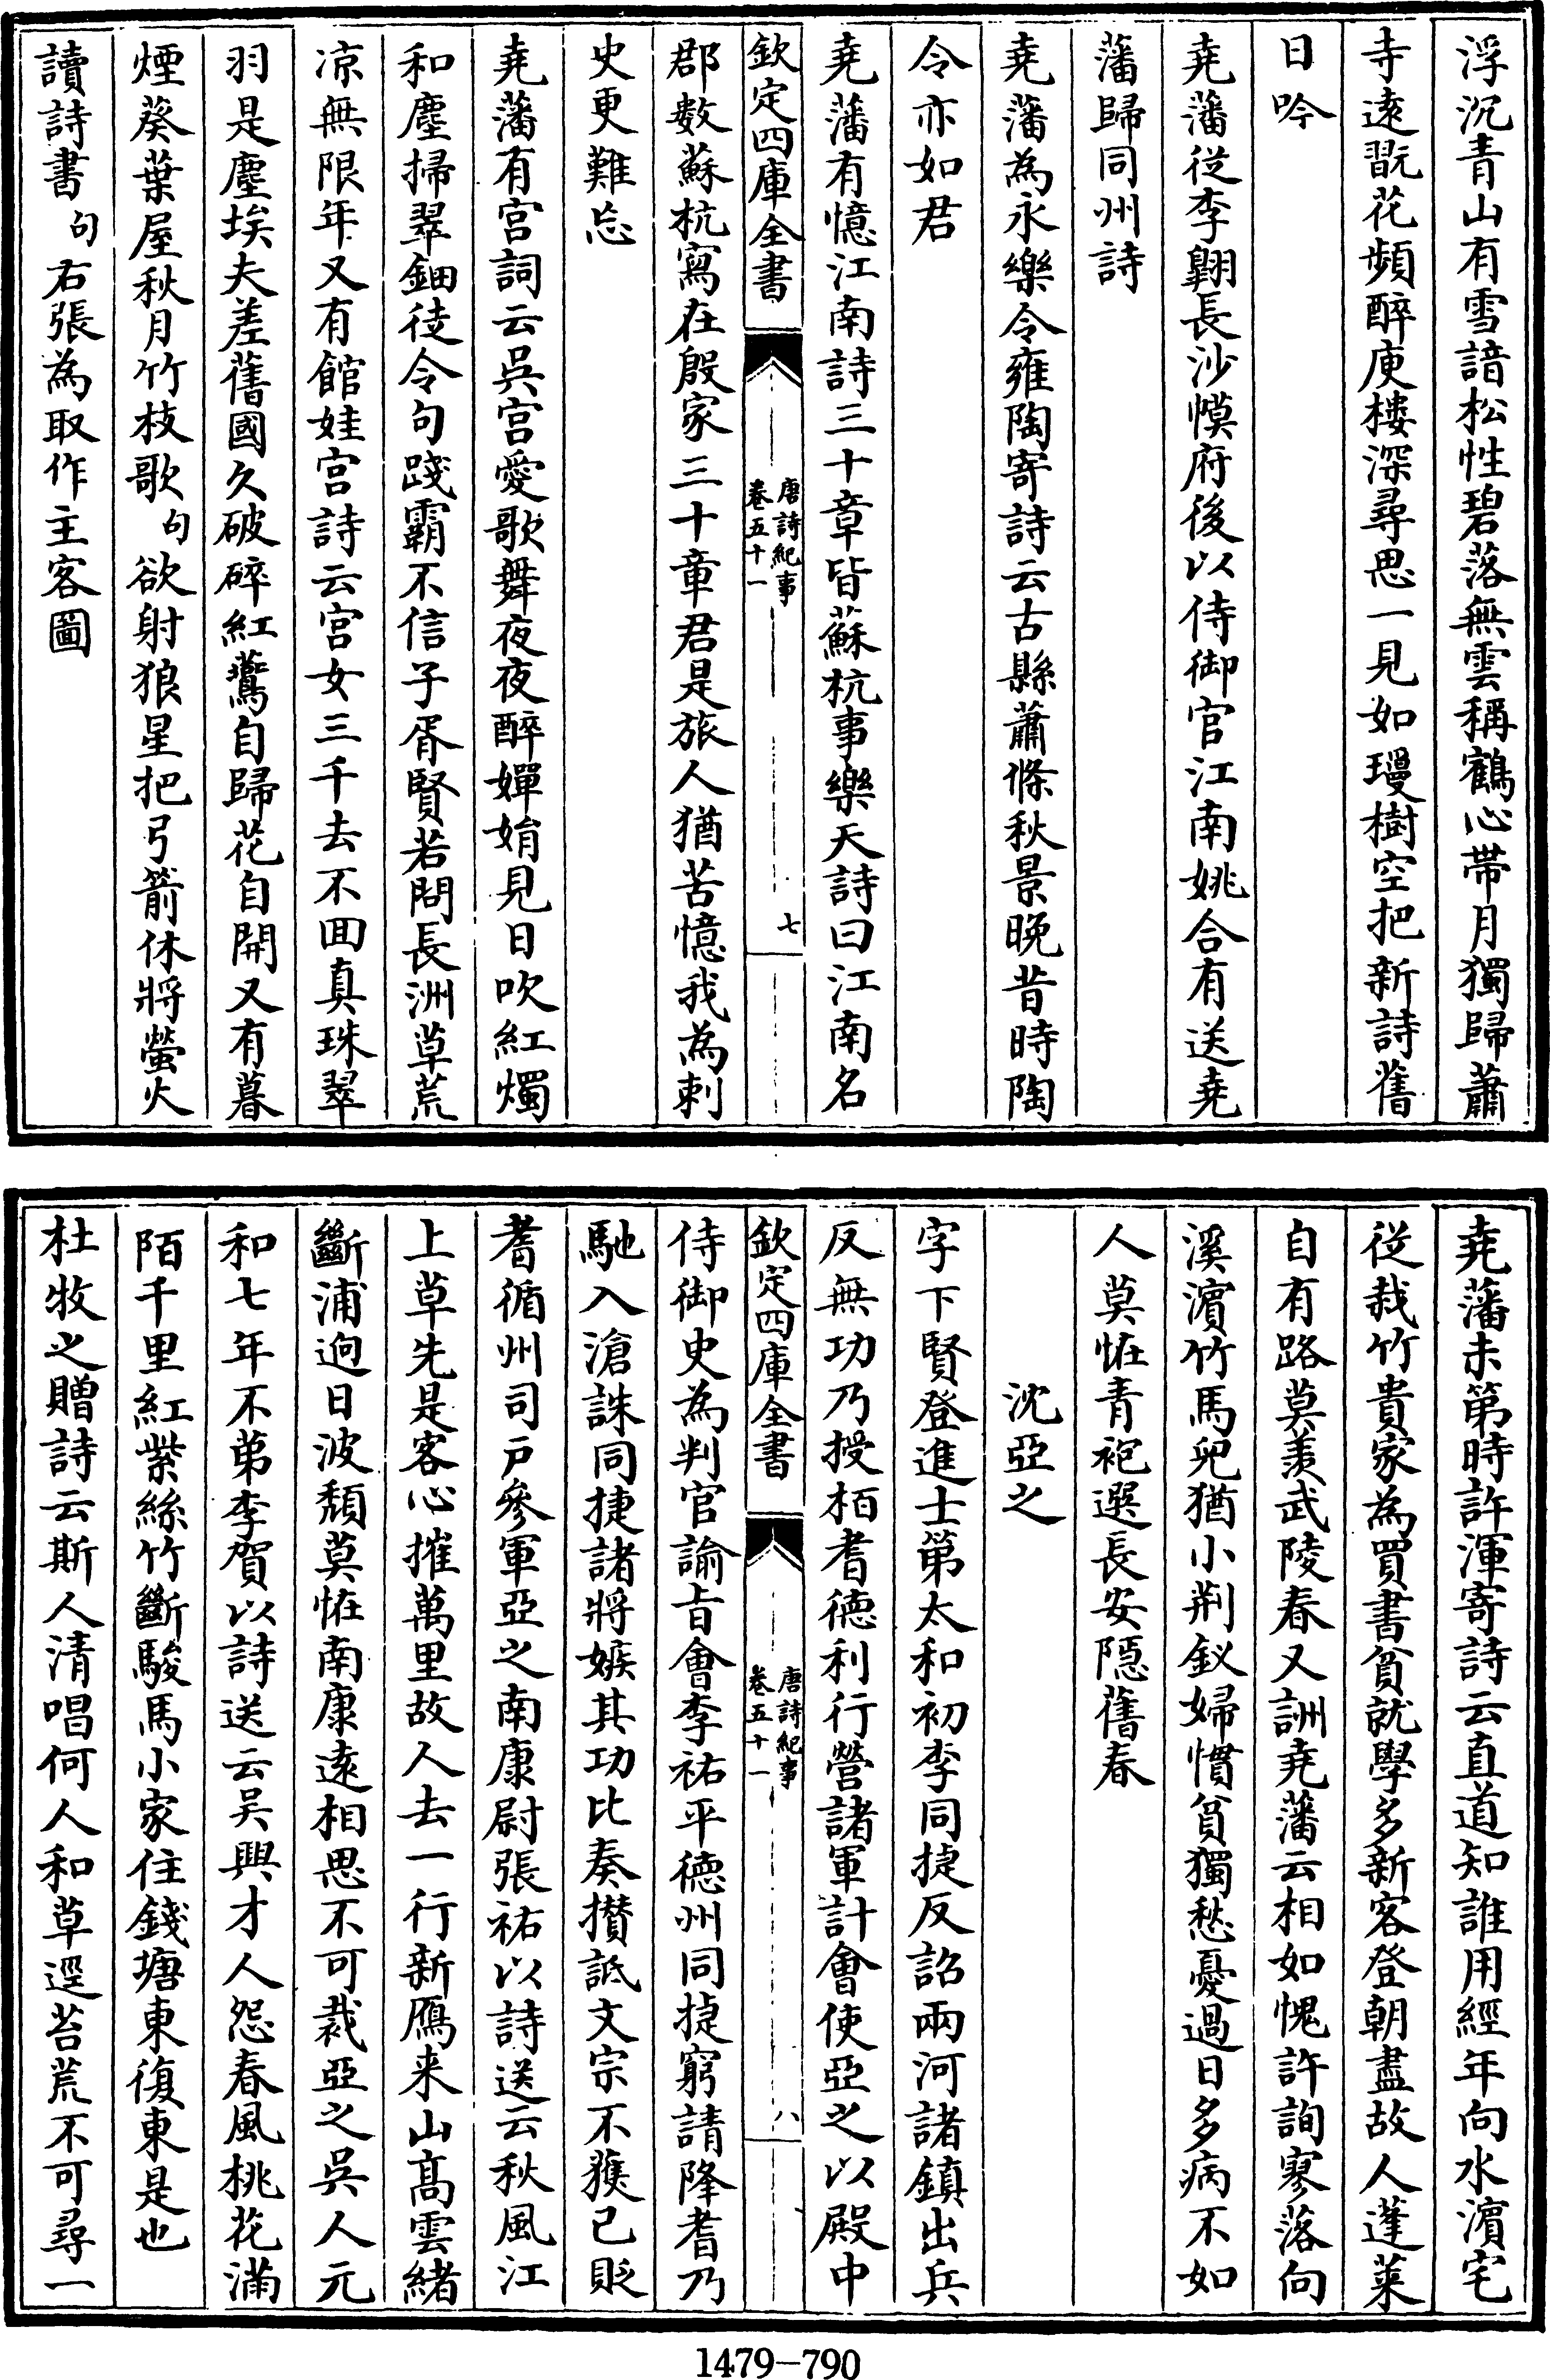 浮沉青山有雪諳松性碧落無雲稱鶴心帶月獨歸蕭
寺遠翫花頻醉庾樓深尋思一見如瓊樹空把新詩舊
日吟
堯藩從李翺長沙幙府後以侍御官江南姚合有送堯
藩歸同州詩
堯藩為永樂令雍陶寄詩云古縣蕭條秋景晚昔時陶
令亦如君
堯藩有憶江南詩三十章皆蘇杭事樂天詩曰江南名
欽定四庫全書
唐詩紀事
卷五十一
七
郡數蘇杭寫在殷家三十章君是旅人猶苦憶我為刺
史更難忘
堯藩有宮詞云吳宮愛歌舞夜夜醉嬋娟見日吹紅燭
和塵掃翠鈿徒令句踐霸不信子胥賢若問長洲草荒
凉無限年又有館娃宮詩云宮女三千去不囬真珠翠
羽是塵埃夫差舊國久破碎紅鷰自歸花自開又有暮
煙葵葉屋秋月竹枝歌句欲射狼星把弓箭休將螢火
讀詩書句右張為取作主客圖
堯藩未第時許渾寄詩云直道知誰用經年向水濵宅
從栽竹貴家為買書貧就學多新客登朝盡故人蓬萊
自有路莫羨武陵春又詶堯藩云相如愧許詢寥落向
溪濵竹馬兒猶小荆釵婦慣貧獨愁憂過日多病不如
人莫恠青袍選長安隱舊春
沈亞之
字下賢登進士第太和初李同捷反詔兩河諸鎮出兵
反無功乃授栢耆德利行營諸軍計會使亞之以殿中
欽定四庫全書
唐詩紀事
卷五十一
八
侍御史為判官諭㫖會李祐平德州同捷窮請降耆乃
馳入滄誅同捷諸將嫉其功比奏攢詆文宗不獲已貶
耆循州司戸參軍亞之南康尉張祜以詩送云秋風江
上草先是客心摧萬里故人去一行新鴈来山高雲緒
斷浦迥日波頹莫恠南康遠相思不可裁亞之吳人元
和七年不苐李賀以詩送云吳興才人怨春風桃花滿
陌千里紅紫絲竹斷驄馬小家住錢塘東復東是也
杜牧之贈詩云斯人清唱何人和草逕苔荒不可尋一
1479-790